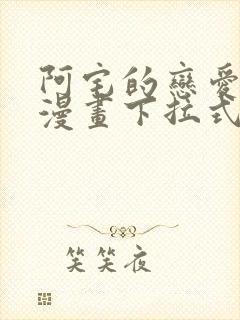 阿宅的戀愛
漫畫下拉式
笑笑夜